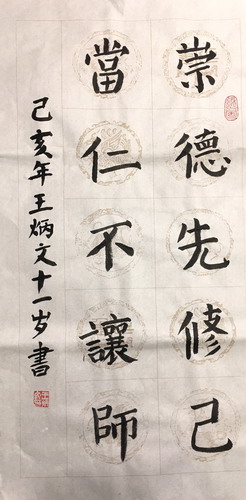 崇德先修己
當仁不讓師
己亥年王炳文十一岁書